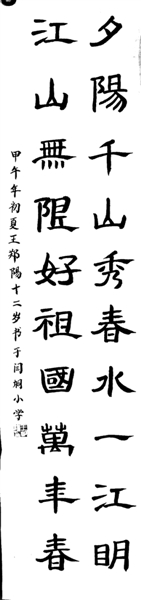 夕陽千山秀春水一江明
江山無限好祖國萬年春
甲午年初夏王郑陽十二岁书于闫垌小学